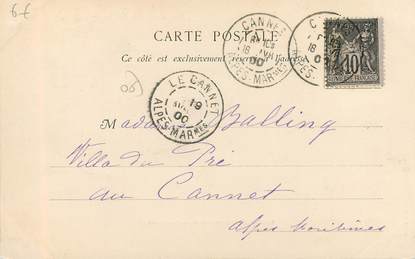 6f
CARTE POSTALE
Ce côté est exclusivement réservé à l'adresse
CANNES
16
00
ALPES-MARmes
C
16
ALPES-
10
LE CANNET
19
00
ALPES-MARmes
Madame Balling
Villa du Pré
au Cannet
Alpes Maritimes